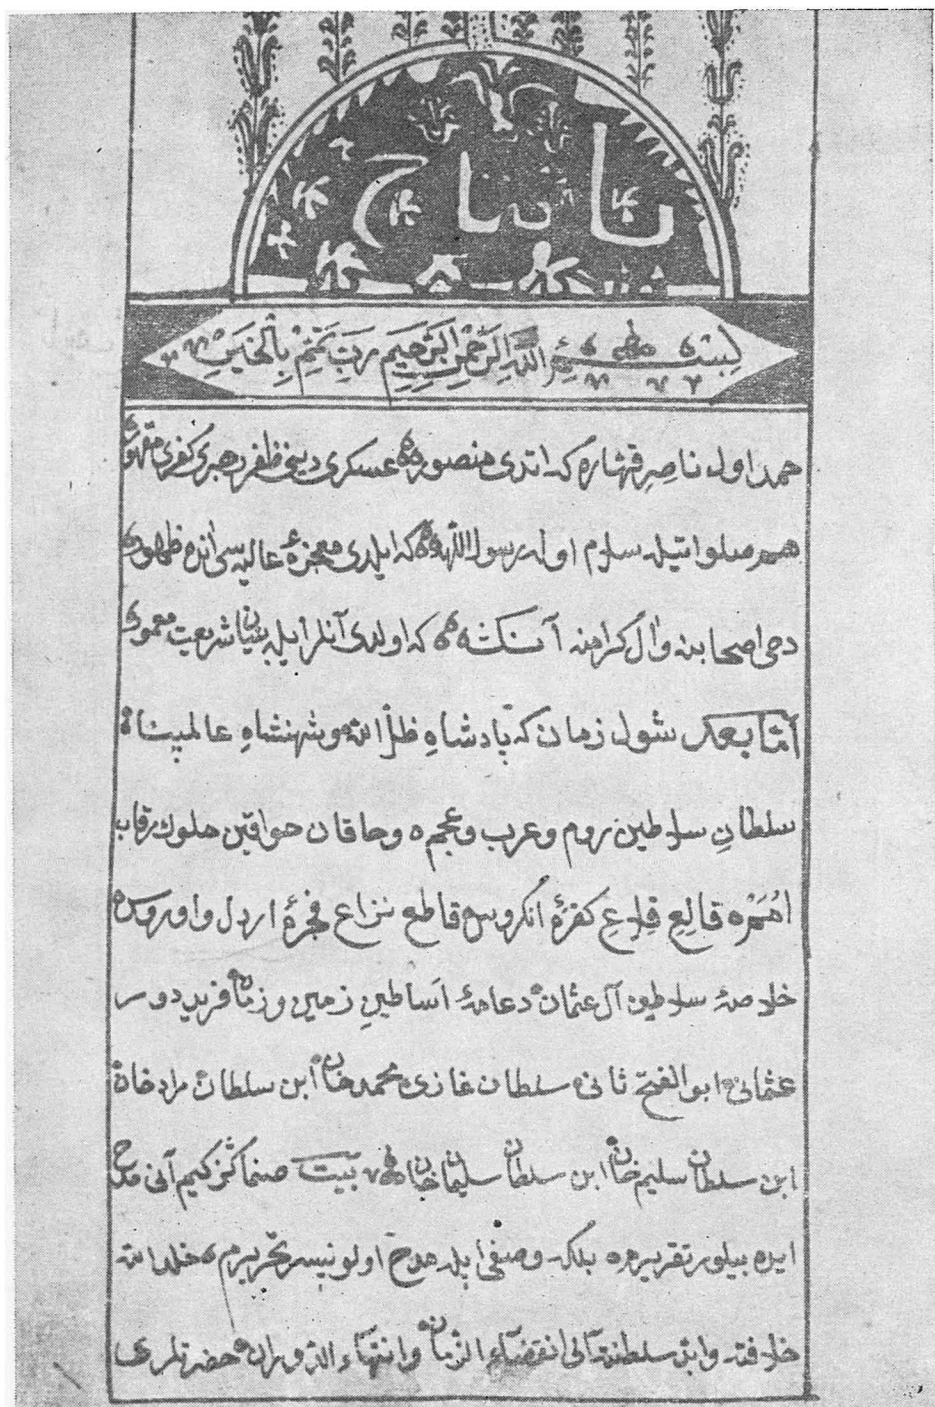 بسم الله الرحمن الرحيم رب تمم بالخير
حمد اول ناصر قهاره كه اتدى منصور عسكرى دينى ظفر رهبرى كفرى مقهور
هم صلواتيله سلام اوله رسول اللهه كه ايلدى معجزۀ عاليه سى انده ظهور
دخى اصحابنه وآل كرامنه آنك كه اولدى آنلر ايله بنيان شريعت معمور
اما بعد شول زمان كه پادشاه ظل الله وشهنشاه عالمپناه
سلطان سلاطين روم وعرب وعجم وخاقان خواقين ملوك رقاب
امم قالع قلاع كفرۀ انكروس قاطع نزاع فجرۀ اردل و
خلاصۀ سلاطين آل عثمان دعامۀ اساطين زمين وزمان فريد دور
عثمانى ابو الفتح ثانى سلطان غازى محمد خان ابن سلطان مراد خان
ابن سلطان سليم خان ابن سلطان سليمان خان بيت صنماكز كيم آنى مدح
ايده بيلور تقريرم بلكه وصفى ايله مدح اولونيسر تحريرم خلد الله
خلافته وابد سلطنته الى انقضاء الزمان وانتهاء الدوران حضرتلرى